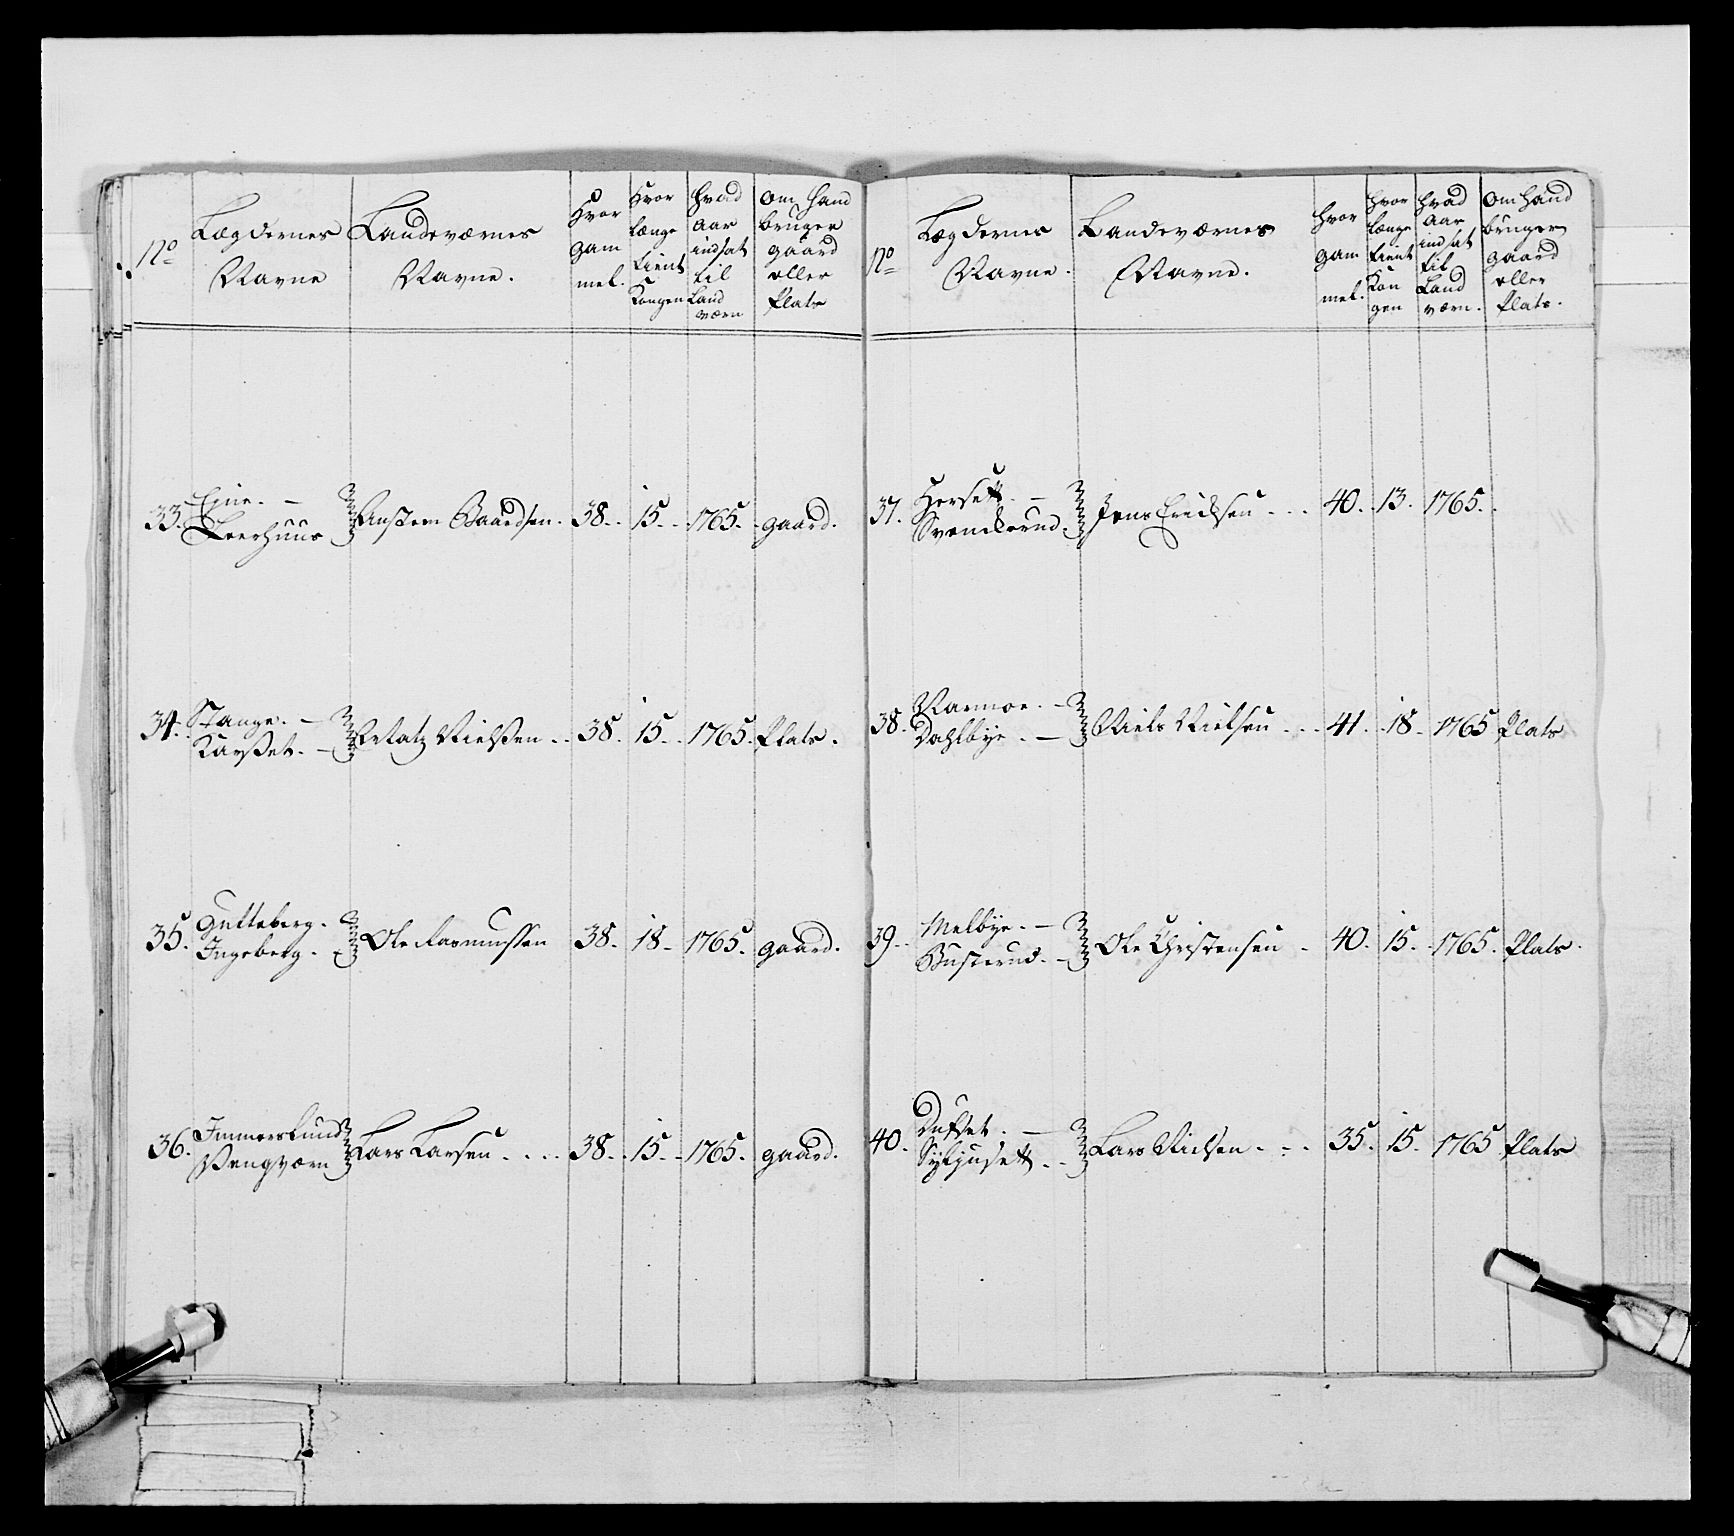 No
Lægdernes
Navne
Landeværnes
Navne.
Hvor
gam
mel.
Hvor
længe
tient
Kongen
hvad
aar
indsat
til
Land
værn
om hand
bruger
gaard
eller
Plats
33. Ejne. —
Leerhuus
Amstem Baardsen. 38. 15. 1765. gaard.
34. Stange. —
Karsset. —
Nielssen 38. 15. 1765. Plats.
35. Gutteberg.
Ingeberg.
Ole Rasmussen 38. 18. 1765. gaard.
36. Immerslund
Wengværn
Lars Larsen 38. 15. 1765. gaard.
No
Lægdernes
Navne.
Landeværnes
Navne.
hvor
gam
mel.
hvor
længe
tient
Kon
gen
hvad
aar
indsat
til
Land
værn.
om hand
bruger
gaard
eller
Plats.
37. Hersett. —
Svenkerud.
Jens Ericksen 40. 13. 1765.
38. Narmoe. —
Dahlbye. —
Niels Nielsen 41. 18. 1765 Plats
39. Melbye. —
Busterud. —
Ole Christensen 40. 15. 1765. Plats.
40. Dufset. —
Syljusett.
Lars Nielsen 35. 15. 1765 Plats